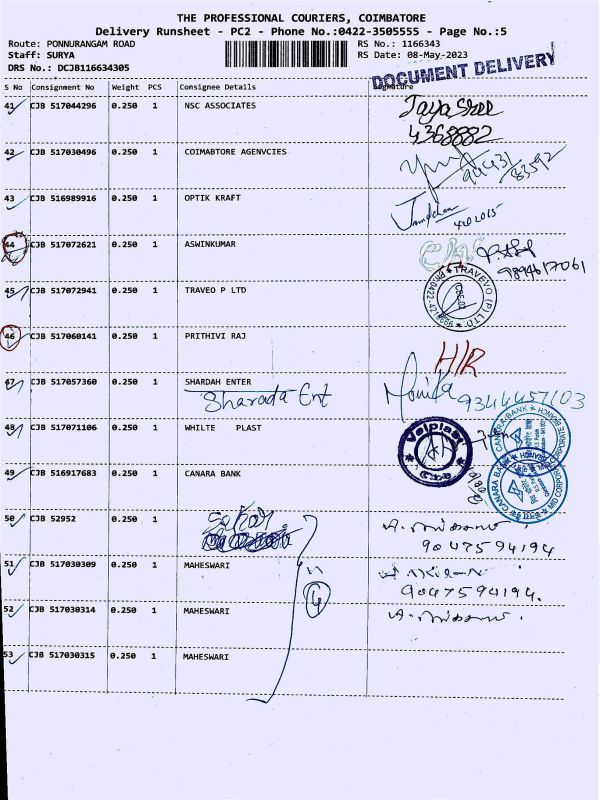 THE PROFESSIONAL COURIERS, COIMBATORE
Delivery Runsheet - PC2 - Phone No.:0422-3505555 - Page No.:5
Route: PONNURANGAM ROAD RS No.: 1166343
Staff: SURYA RS Date: 08-May-2023
DRS No.: DCJB116634305
DOCUMENT DELIVERY
S No Consignment No Weight PCS Consignee Details Signature
41 CJB 517044296 0.250 1 NSC ASSOCIATES
4368882
42 CJB 517030496 0.250 1 COIMABTORE AGENVCIES
94431
83592
43 CJB 516989916 0.250 1 OPTIK KRAFT
44 CJB 517072621 0.250 1 ASWINKUMAR
9894617061
45 CJB 517072941 0.250 1 TRAVEO P LTD
TRAVEVO (P) LTD.
46 CJB 517060141 0.250 1 PRITHIVI RAJ
H/R
47 CJB 517057360 0.250 1 SHARDAH ENTER
Sharada Ent Monika 9344457103
48 CJB 517071106 0.250 1 WHILTE PLAST
Velplast
49 CJB 516917683 0.250 1 CANARA BANK
CANARA BANK
50 CJB 52952 0.250 1
9047594194
51 CJB 517030309 0.250 1 MAHESWARI
9047594194.
4
52 CJB 517030314 0.250 1 MAHESWARI
53 CJB 517030315 0.250 1 MAHESWARI